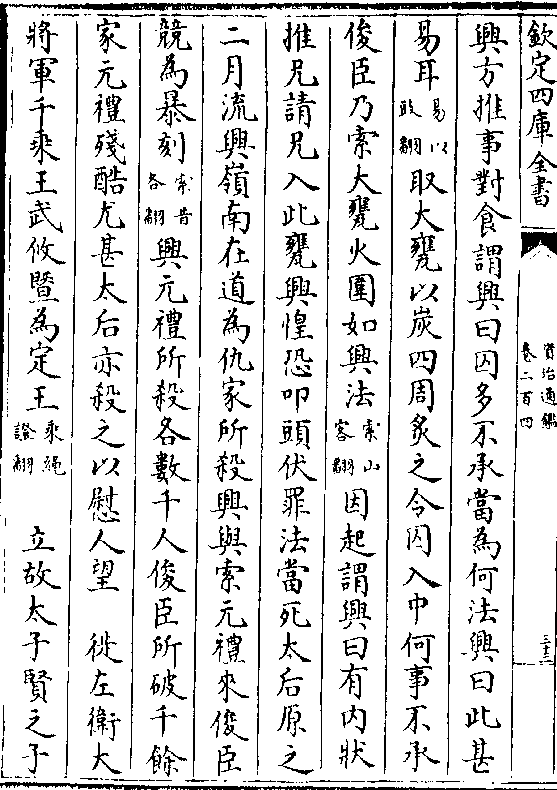 欽定四庫全書
資治通鑑
卷二百四
三十二
興方推事對食謂興曰囚多不承當為何法興曰此甚
易耳易以豉翻取大甕以炭四周炙之令囚入中何事不承
俊臣乃索大甕火圍如興法索山客翻因起謂興曰有内狀
推兄請兄入此甕興惶恐叩頭伏罪法當死太后原之
二月流興嶺南在道為仇家所殺興與索元禮來俊臣
競為暴刻索昔各翻興元禮所殺各數千人俊臣所破千餘
家元禮殘酷尤甚太后亦殺之以慰人望　徙左衛大
將軍千乘王武攸暨為定王乘繩證翻　立故太子賢之子